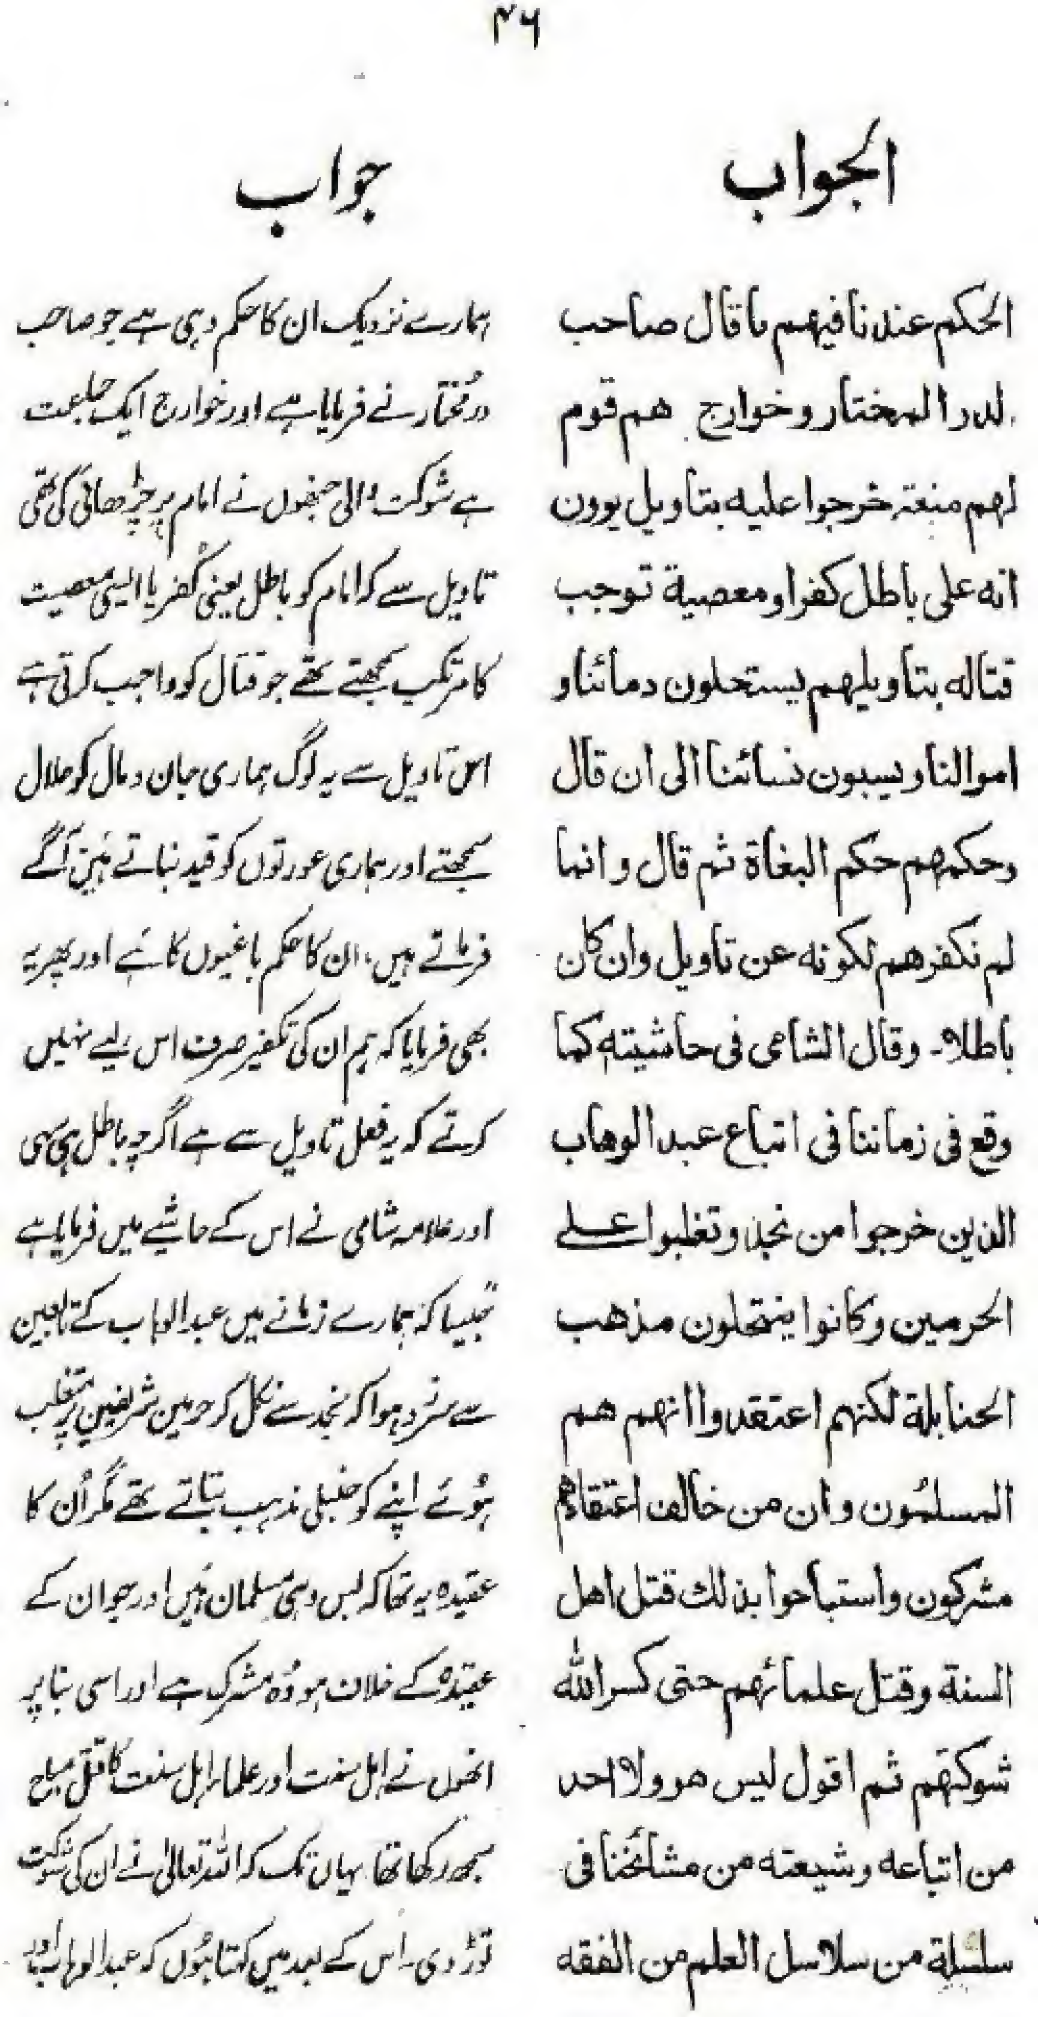 ۴۶
الجواب
الحكم عندنا فيهم ما قال صاحب
لدر المختار وخوارج هم قوم
لهم منعة خرجوا عليه بتاويل يرون
انه على باطل كفر او معصية توجب
قتاله بتاويلهم يستحلون دمائنا و
اموالنا ويسبون نسائنا الى ان قال
وحكمهم حكم البغاة ثم قال و انما
لم نكفرهم لكونه عن تاويل وان كان
باطلا۔ وقال الشامي في حاشيته كما
وقع في زماننا في اتباع عبد الوهاب
الذين خرجوا من نجد وتغلبوا على
الحرمين وكانوا ينتحلون مذهب
الحنابلة لكنهم اعتقدوا انهم هم
المسلمون وان من خالف اعتقادهم
مشركون واستباحوا بذلك قتل اهل
السنة وقتل علمائهم حتى كسر الله
شوكتهم ثم اقول ليس هو ولا احد
من اتباعه وشيعته من مشائخنا في
سلسلة من سلاسل العلم من الفقه
جواب
ہمارے نزدیک ان کا حکم وہی ہے جو صاحب
درمختار نے فرمایا ہے اور خوارج ایک جماعت
ہے شوکت والی جنھوں نے امام پر چڑھائی کی تھی
تاویل سے کہ امام کو باطل یعنی کُفر یا ایسی معصیت
کا مرتکب سمجھتے تھے جو قتال کو واجب کرتی ہے
اس تاویل سے یہ لوگ ہماری جان و مال کو حلال
سمجھتے اور ہماری عورتوں کو قید بناتے ہیں آگے
فرماتے ہیں، ان کا حکم باغیوں کا ہے اور پھر یہ
بھی فرمایا کہ ہم ان کی تکفیر صرف اس لیے نہیں
کرتے کہ یہ فعل تاویل سے ہے اگرچہ باطل ہی سہی
اور علامہ شامی نے اس کے حاشیے میں فرمایا ہے
جیسا کہ ہمارے زمانے میں عبدالوہاب کے تابعین
سے سرزد ہوا کہ نجد سے نکل کر حرمین شریفین پر متغلب
ہوئے اپنے کو حنبلی مذہب بتاتے تھے مگر اُن کا
عقیدہ یہ تھا کہ بس وہی مسلمان ہیں اور جو ان کے
عقیدہ کے خلاف ہو وُہ مشرک ہے اور اسی بنا پر
انھوں نے اہل سنت اور علماء اہل سنت کا قتل مباح
سمجھ رکھا تھا یہاں تک کہ اللہ تعالیٰ نے ان کی شوکت
توڑ دی۔ اس کے بعد میں کہتا ہُوں کہ عبدالوہاب اور